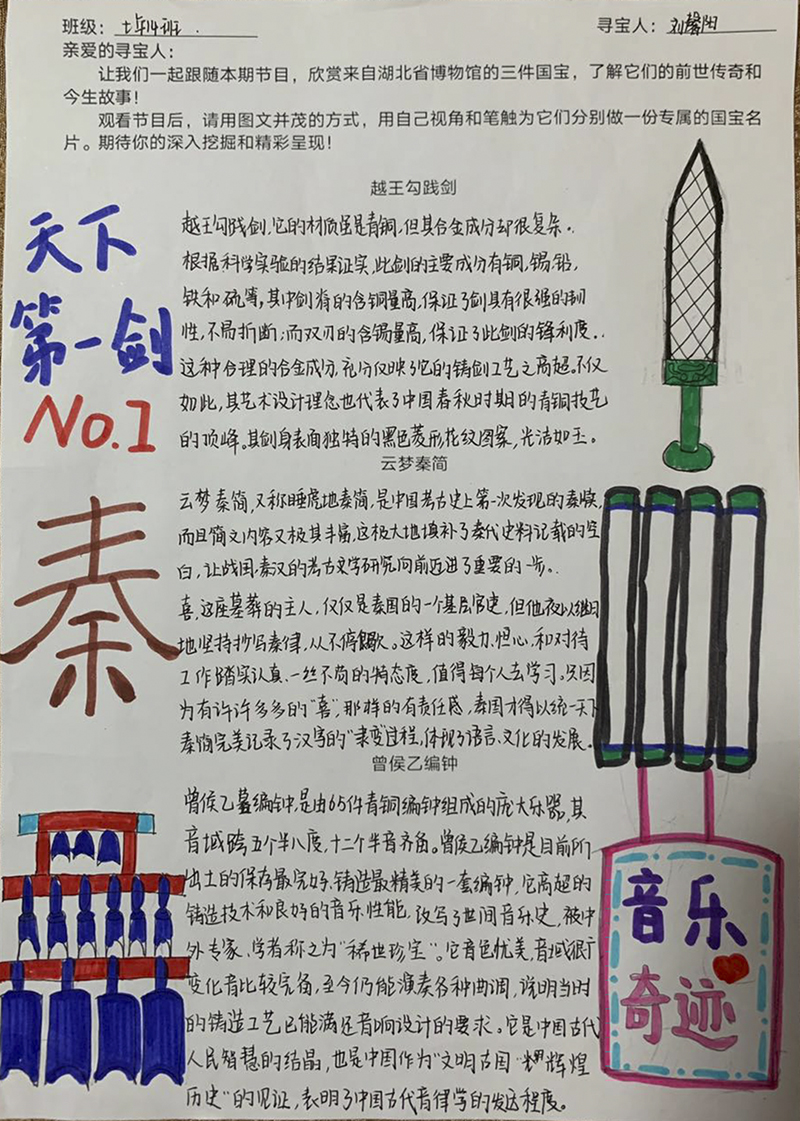 班级：七年14班
寻宝人：刘馨阳
亲爱的寻宝人：
让我们一起跟随本期节目，欣赏来自湖北省博物馆的三件国宝，了解它们的前世传奇和
今生故事！
观看节目后，请用图文并茂的方式，用自己视角和笔触为它们分别做一份专属的国宝名
片。期待你的深入挖掘和精彩呈现！
越王勾践剑
天下
第一剑
No.1
越王勾践剑，它的材质虽是青铜，但其合金成分却很复杂。
根据科学实验的结果证实，此剑的主要成分有铜，锡，铅，
铁和硫等，其中剑脊的含铜量高，保证了剑具有很强的韧
性，不易折断；而双刃的含锡量高，保证了此剑的锋利度。
这种合理的合金成分，充分反映了它的铸剑工艺之高超。不仅
如此，其艺术设计理念也代表了中国春秋时期的青铜技艺
的顶峰。其剑身表面独特的黑色菱形花纹图案，光洁如玉。
云梦秦简
秦
云梦秦简，又称睡虎地秦简，是中国考古史上第一次发现的秦牍，
而且简文内容又极其丰富，这极大地填补了秦代史料记载的空
白，让战国、秦汉的考古文学研究向前迈进了重要的一步。
喜，这座墓葬的主人，仅仅是秦国的一个基层官吏，但他夜以继日
地坚持抄写秦律，从不停歇。这样的毅力、恒心，和对待
工作踏实认真、一丝不苟的特态度，值得每个人去学习。只因
为有许许多多的“喜”，那样的有责任感，秦国才得以统一天下
秦简完美记录了汉字的“隶变”过程，体现了语言、文化的发展。
曾侯乙编钟
曾侯乙编钟，是由65件青铜编钟组成的庞大乐器，其
音域跨五个半八度，十二个半音齐备。曾侯乙编钟是目前所
出土的保存最完好、铸造最精美的一套编钟，它高超的
铸造技术和良好的音乐性能，改写了世间音乐史，被中
外专家、学者称之为“稀世珍宝”。它音色优美，音域很广
变化音比较完备，至今仍能演奏各种曲调，说明当时
的铸造工艺已能满足音响设计的要求。它是中国古代
人民智慧的结晶，也是中国作为“文明古国 辉煌
历史”的见证，表明了中国古代音律学的发达程度。
音乐
奇迹